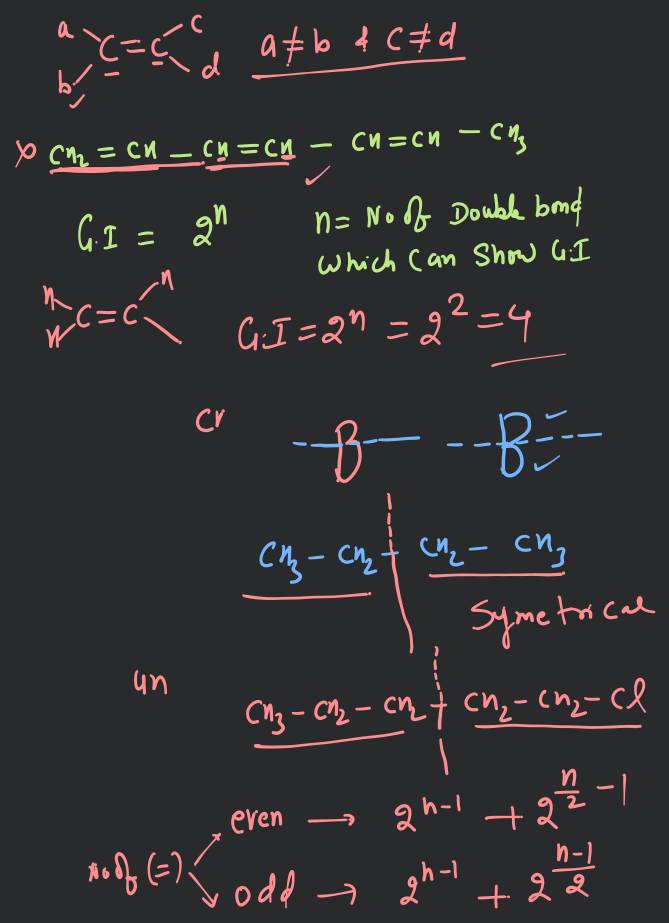 a c
C=C a≠b & C≠d
b d
CH₂ = CH – CH = CH – CH = CH – CH₃
G.I = 2ⁿ n = No of Double bond
which Can Show G.I
H H
C=C
H
G.I = 2ⁿ = 2² = 4
B B
CH₃ – CH₂ – CH₂ – CH₃
Symetrical
un
CH₃ – CH₂ – CH₂ – CH₂ – CH₂ – Cl
even → 2ⁿ⁻¹ + 2^(n/2 – 1)
No of (=)
odd → 2ⁿ⁻¹ + 2^((n-1)/2)